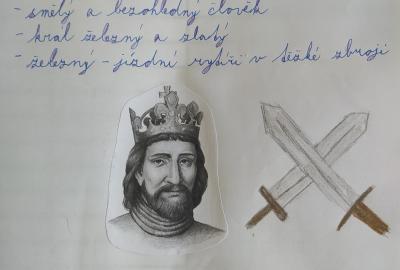 - smělý a bezohledný člověk
- král železný a zlatý
- železný - jízdní rytíři v těžké zbroji